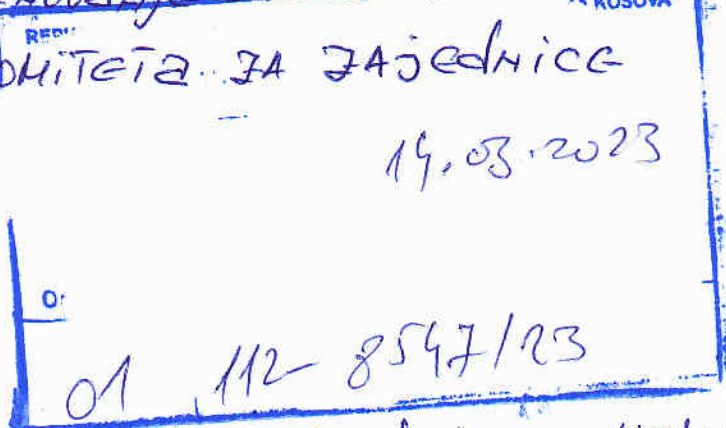 KOSOVA
KOMITETA ZA ZAJEDNICE
14.03.2023
01 112- 8547/23